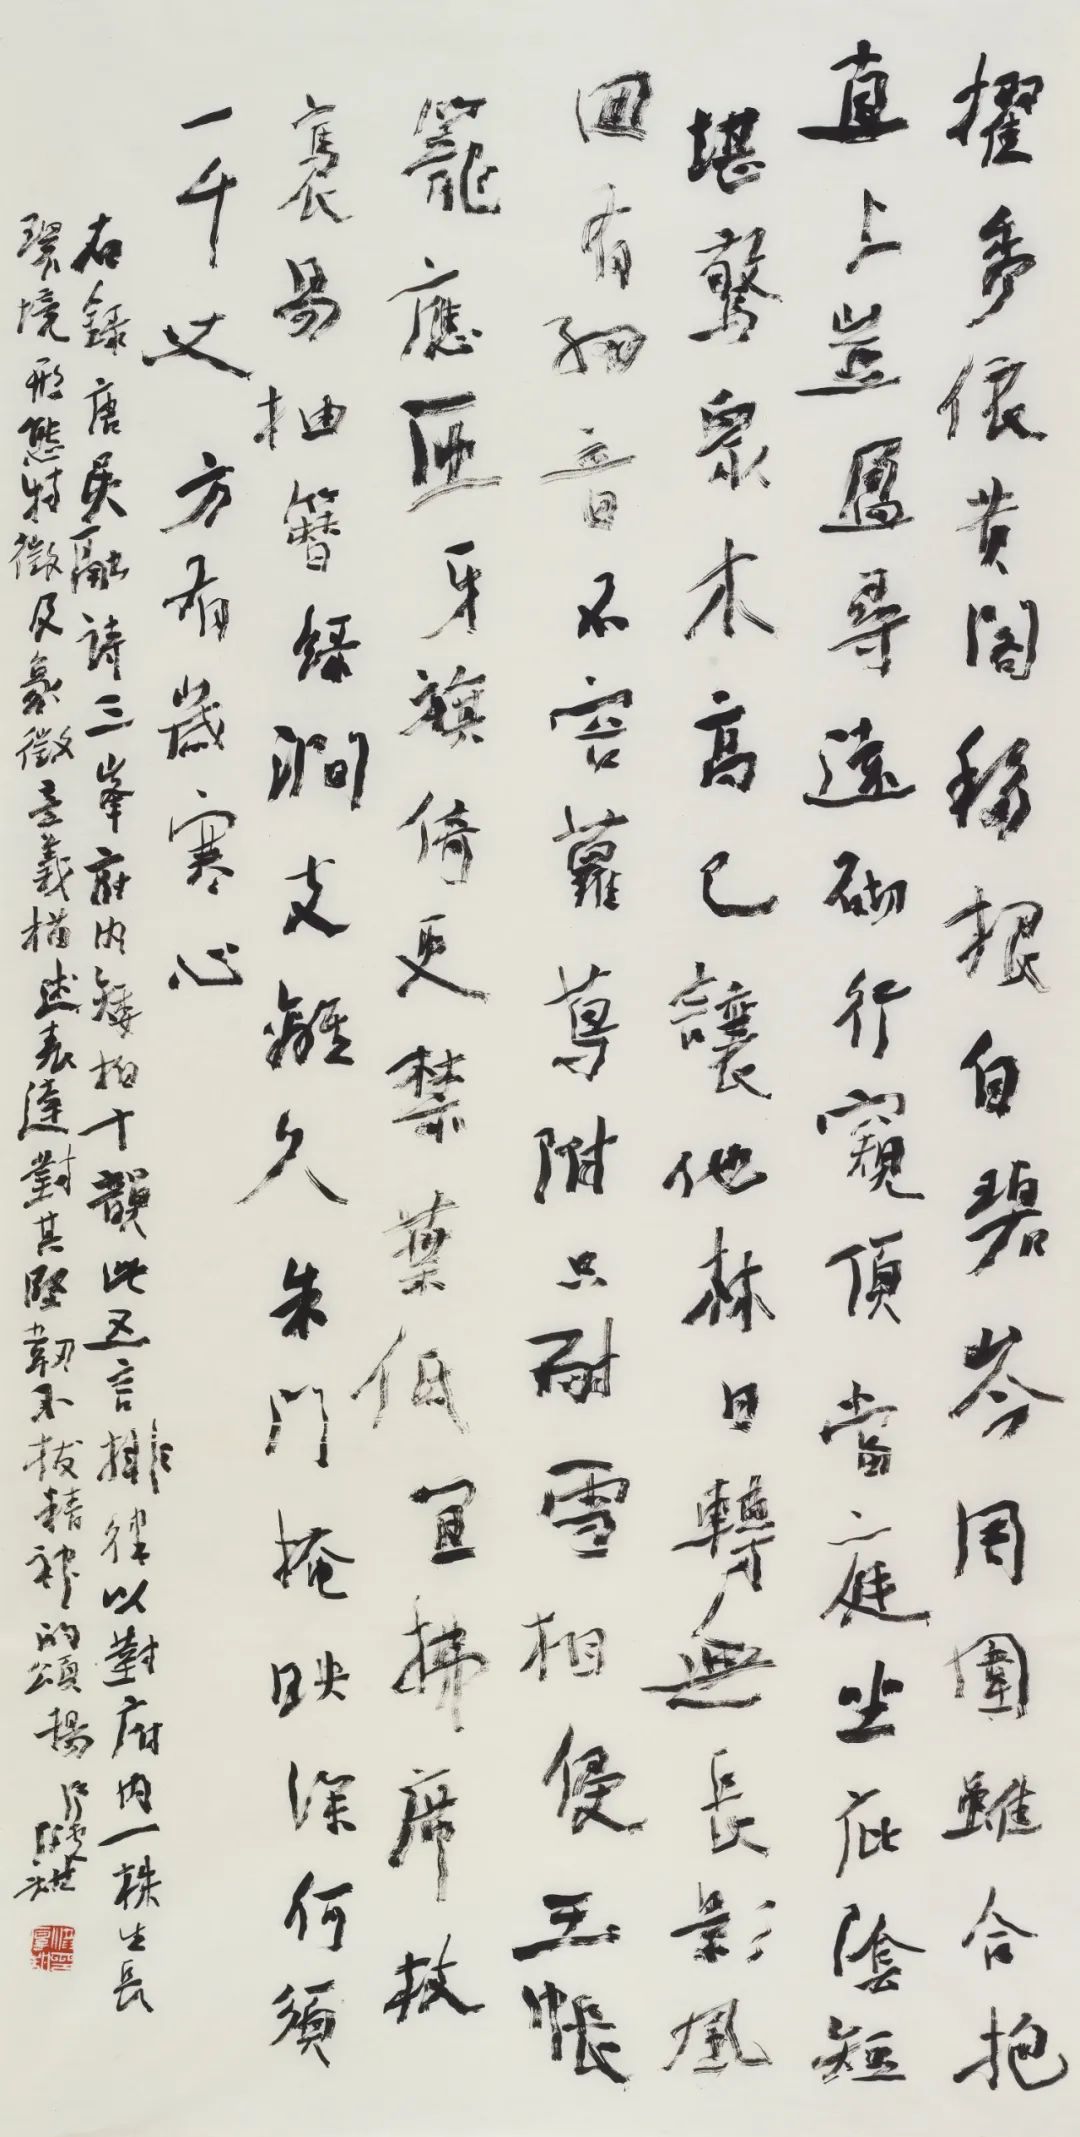 擢秀依黄閣移根自碧岑周圍雖合抱
直上豈過尋遠砌行窺頂當庭坐庇陰短
堪驚衆木高已讓他林日轉無長影風
回有細音不容蘿蔦附只耐雪相侵玉帳
籠應匝牙旗倚更禁葉低宜拂席枝
褭易抽簪綠澗支離久朱門掩映深何須
一千丈方有歲寒心
右錄唐吳融詩三峯府内矮柏十韻此五言排律以對府内一株生長
環境形態特徵及象徵意義描述表達對其堅韌不拔精神的頌揚